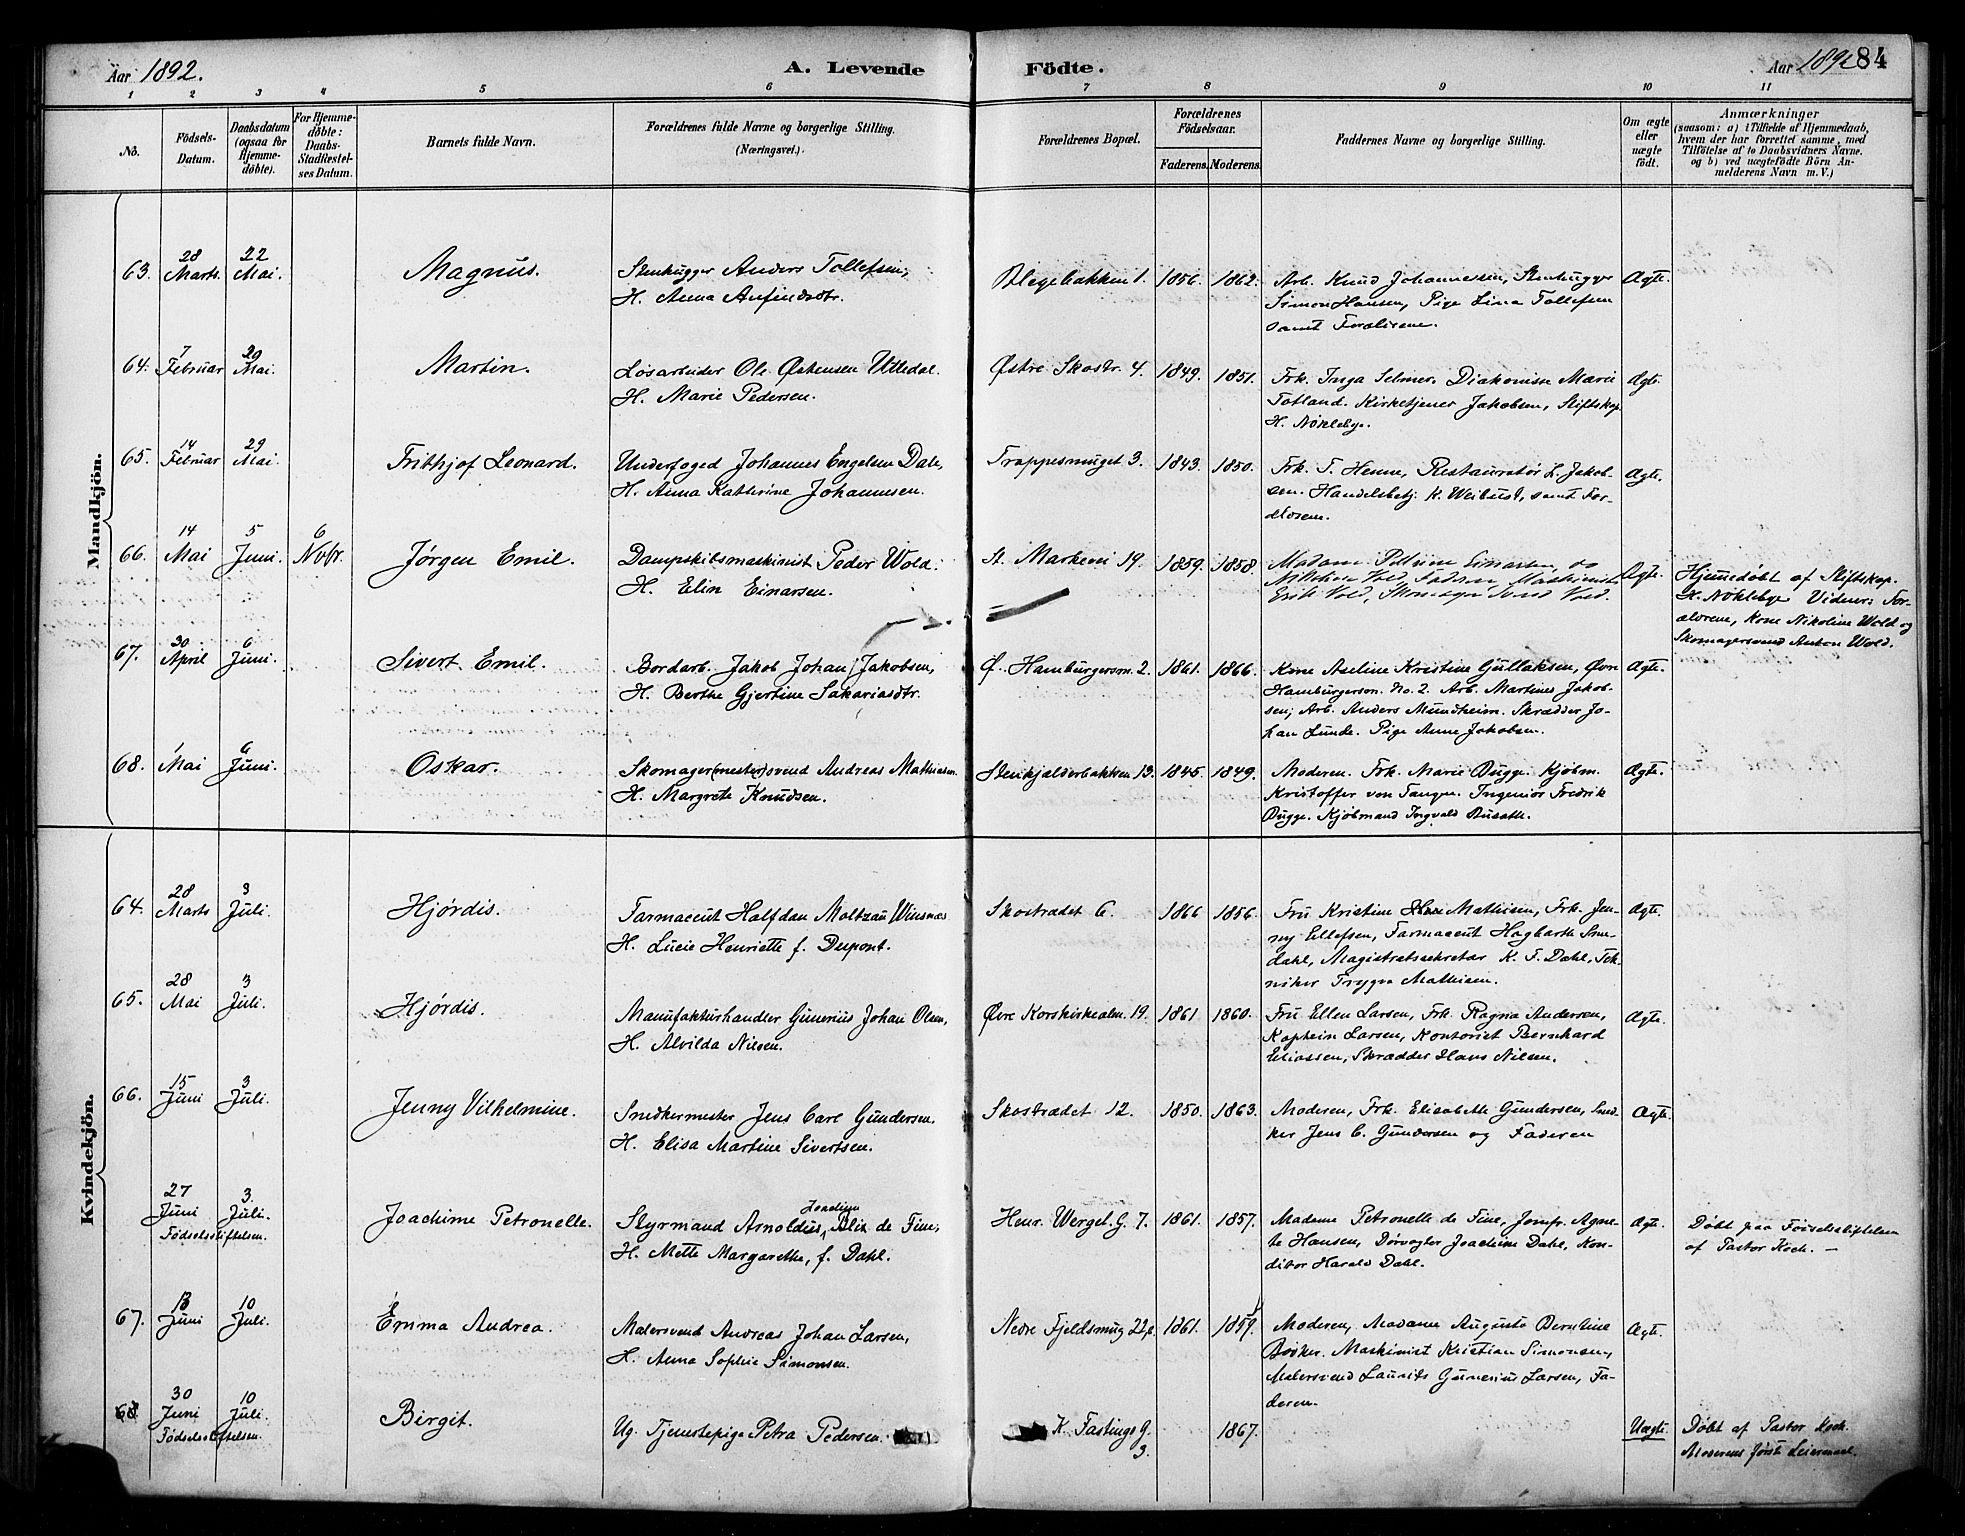 Aar 1892.
A. Levende
Födte.
Aar 1892
84
1 2 3 4 5 6 7 8 9 10 11
No.
Födsels-
Datum.
Daabsdatum
(ogsaa for
Hjemme-
döbte).
For Hjemme-
döbte:
Daabs-
Stadfæstel-
ses Datum.
Barnets fulde Navn.
Forældrenes fulde Navne og borgerlige Stilling.
(Næringsvei.)
Forældrenes Bopæl.
Forældrenes
Födselsaar.
Faderens. Moderens.
Faddernes Navne og borgerlige Stilling.
Om ægte
eller
uægte
födt.
Anmærkninger
(saasom: a) i Tilfælde af Hjemmedaab,
hvem der har forrettet samme, med
Tilföielse af to Daabsvidners Navne.
og b) ved uægtefödte Börn An-
melderens Navn m. V.)
Mandkjön.
63. 28 Marts. 22 Mai. Magnus. Stenhugger Anders Tollefsen, Blegebakken 1. 1856. 1862. Arb. Knud Johannessen, Stenhugger Ægte.
H. Anna Anfindsdtr. Simon Hansen, Pige Lina Tollefsen
samt Forældrene.
64. 7 Februar 29 Mai. Martin. Løsarbeider Ole Østensen Utledal. Østre Skostr. 4. 1849. 1851. Frk. Inga Selmer. Diakonisse Marie Ægte.
H. Marie Pedersen. Totland. Kirketjener Jakobsen, Stiftskap.
H. Nøkleby.
65. 14 Februar 29 Mai. Frithjof Leonard. Underfoged Johannes Engelsen Dale, Trappesmuget 3. 1843. 1850. Frk. T. Henne, Restauratør L. Jakob- Ægte.
H. Anna Kathrine Johannesen. sen. Handelsbetj. K. Weibust, samt For-
ældrene.
66. 14 Mai 5 Juni. 6 Novbr. Jørgen Emil. Dampskibsmaskinist Peder Wold. St. Markevei 19. 1859. 1858. Madam Petrine Einarsen, Ægte. Hjemmedøbt af Stiftskap.
H. Elin Einarsen. Wold, Faderen Maskinist H. Nøkleby Vidner: For-
Erik Vold, Skomager Vold. ældrene, Kone Nikoline Wold og
Skomagersvend Anton Wold.
67. 30 April 6 Juni. Sivert Emil. Bordarb. Jakob Johan Jakobsen, Ø. Hamburgersm. 2. 1861. 1866. Kone Aseline Kristine Gullaksen, Øvre Ægte.
H. Berthe Gjertine Sakariasdtr. Hamburgersm. No. 2. Arb. Martines Jakob-
sen, Arb. Anders Mundheim. Skrædder Jo-
han Lunde. Pige Anne Jakobsen.
68. 1 Mai 6 Juni. Oskar. Skomager(mester)svend Andreas Mathiesen Stenkjælderbakken 13. 1845. 1849. Moderen. Frk. Marie Bugge. Kjøbm. Ægte.
H. Margrete Knudsen. Kristoffer von Tangen. Ingeniør Fredrik
Bugge. Kjøbmand Ingvald
Kvindekjön.
64. 28 Marts 3 Juli. Hjørdis. Farmaceut Halfdan Moltzau Winsnæs Skostrædet 6. 1866 1856. Fru Kristine Mathisen, Frk. Jen- Ægte.
H. Lucie Henriette f. Dupont. ny Ellefsen, Farmaceut Hagbarth Sme-
dahl, Magistratssekretær K. F. Dahl, Tek-
niker Trygve Mathisen.
65. 28 Mai 3 Juli. Hjørdis. Manufakturhandler Gunerius Johan Olsen, Øvre Korskirkealm. 19. 1861 1860. Fru Ellen Larsen, Frk. Ragna Andersen, Ægte.
H. Alvilda Nilsen. Kaptein Larsen, Kontorist Bernhard
Eliassen, Skrædder Hans Nilsen.
66. 15 Juni 3 Juli. Jenny Vilhelmine. Snedkermester Jens Carl Gundersen. Skostrædet 12. 1850. 1863. Moderen, Frk. Elisabeth Gundersen, Sned- Ægte.
H. Elisa Martine Sivertsen. ker Jens C. Gundersen og Faderen
27 Juni 3. Juli. Joachime Petronelle. Styrmand Arnoldus Joachim Alix de Fine, Henr. Wergel. G. 7. 1861. 1857. Madame Petronelle de Fine, Jomfr. Agne- Ægte. Døbt paa Fødselsstiftelsen
Fødselsstiftelsen. H. Mette Margarethe, f. Dahl. te Hansen, Dørvogter Joachim Dahl, Kon- af Pastor Koch. —
ditor Harald Dahl.
67. 13 Juni 10 Juli. Emma Andrea. Malersvend Andreas Johan Larsen, Nedre Fjeldsmug 22, 1861. 1859. Moderen, Madame Augusta Berntine Ægte.
H. Anna Sophie Simonsen. Maskinist Kristian Simonsen,
Malersvend Laurits Gunerius Larsen, Fa-
deren.
68 30 Juni 10 Juli. Birgit. Ug. Tjenestepige Petra Pedersen. K. Fastings G. 3. 1867. Uægte. Døbt af Pastor Koch.
Fødselsstiftelsen. Moderens første Leiermaal.